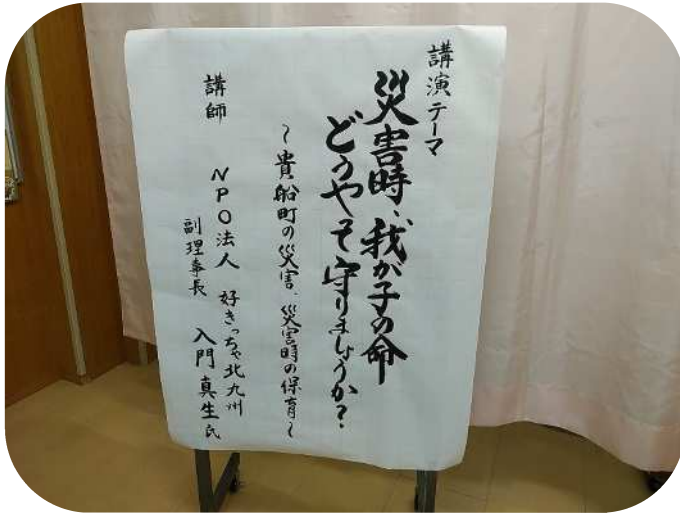 講演テーマ
災害時、我が子の命
どうやって守りましょうか?
~貴船町の災害、災害時の保育~
講師 NPO法人 好きっちゃ北九州
副理事長 入門真生氏